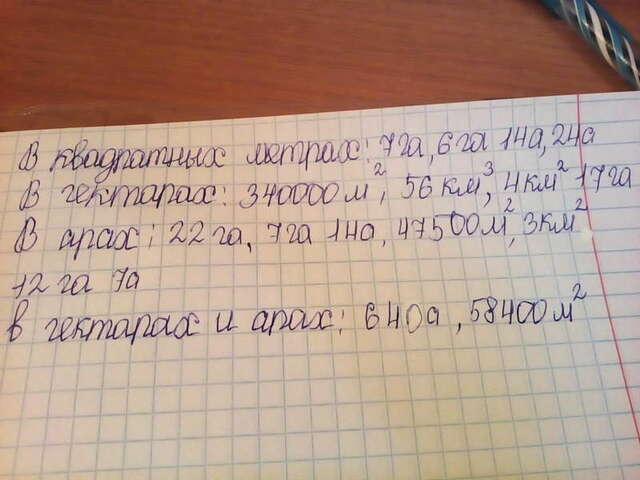 В квадратных метрах: 7га, 6 га 14а, 24а
В гектарах: 340000 м², 56 км³, 4км² 17га
В арах: 22 га, 7га 14а, 47500м², 3км²
42 га 7а
В гектарах и арах: 640а, 58400 м²